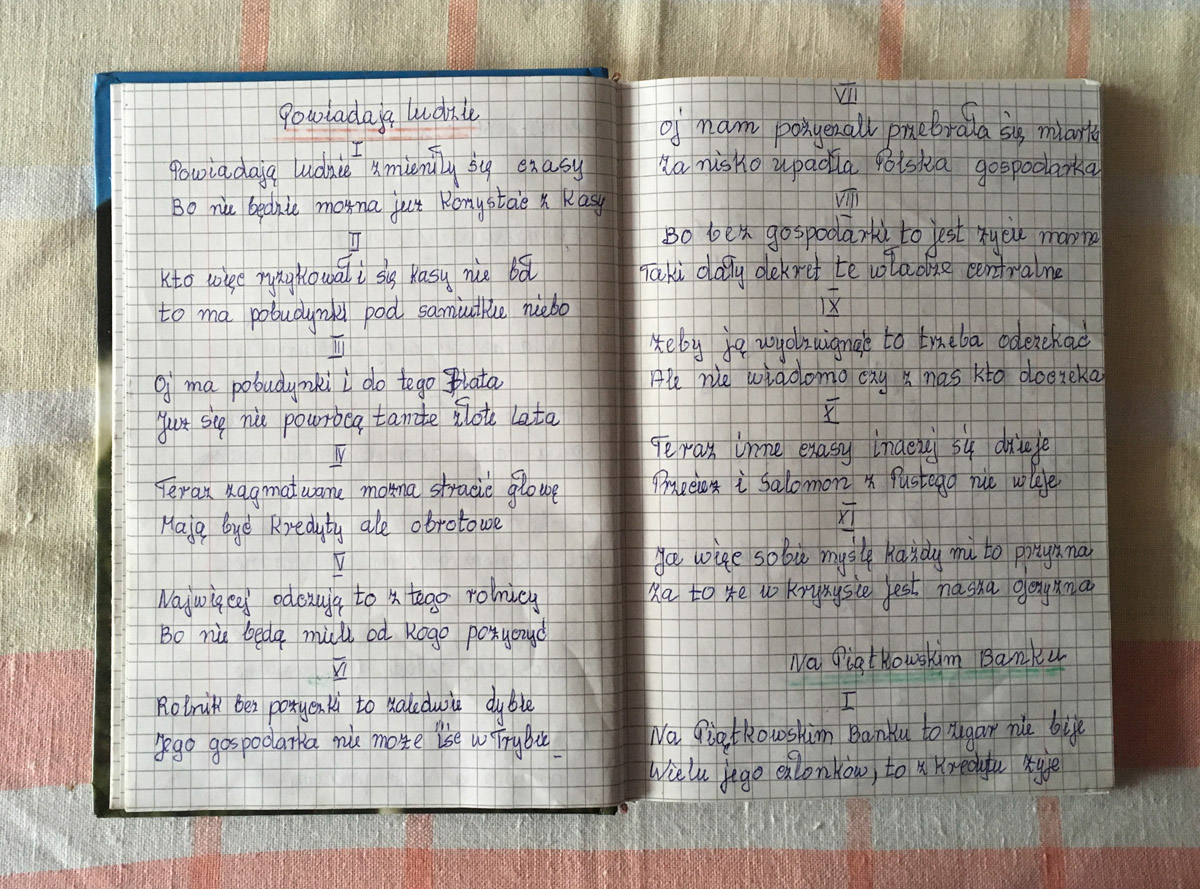 Powiadają ludzie
I
Powiadają ludzie zmieniły się czasy
Bo nie będzie mozna juz Kozystać z Kasy
II
Kto więc ryzykował i się kasy nie bał
to ma pobudynki pod samiutkie niebo
III
Oj ma pobudynki i do tego Blata
Juz się nie powrócą tamte złote Lata
IV
Teraz zagmatwane mozna stracić głowę
Mają być Kredyty ale obrotowe
V
Najwięcej odczują to z tego rolnicy
Bo nie będą mieli od Kogo pozyczyć
VI
Rolnik bez pozyczki to zaledwie dyble
Jego gospodarka nie moze iść w Trybie
VII
Oj nam pozyczali przebrała się miarka
Za nisko upadła Polska gospodarka
VIII
Bo bez gospodarki to jest zycie marne
Taki dały dekret te władze centralne
IX
zeby ją wydzwignąć to trzeba odczekać
Ale nie wiadomo czy z nas kto doczeka
X
Teraz inne czasy inaczej się dzieje
Przeciez i Salomon z Pustego nie wleje
XI
Ja więc sobie myślę każdy mi to przyzna
Za to ze w Kryzysie jest nasza ojczyzna
Na Piątkowskim Banku
I
Na Piątkowskim Banku to zegar nie bije
Wielu jego członków, to z Kredytu zyje